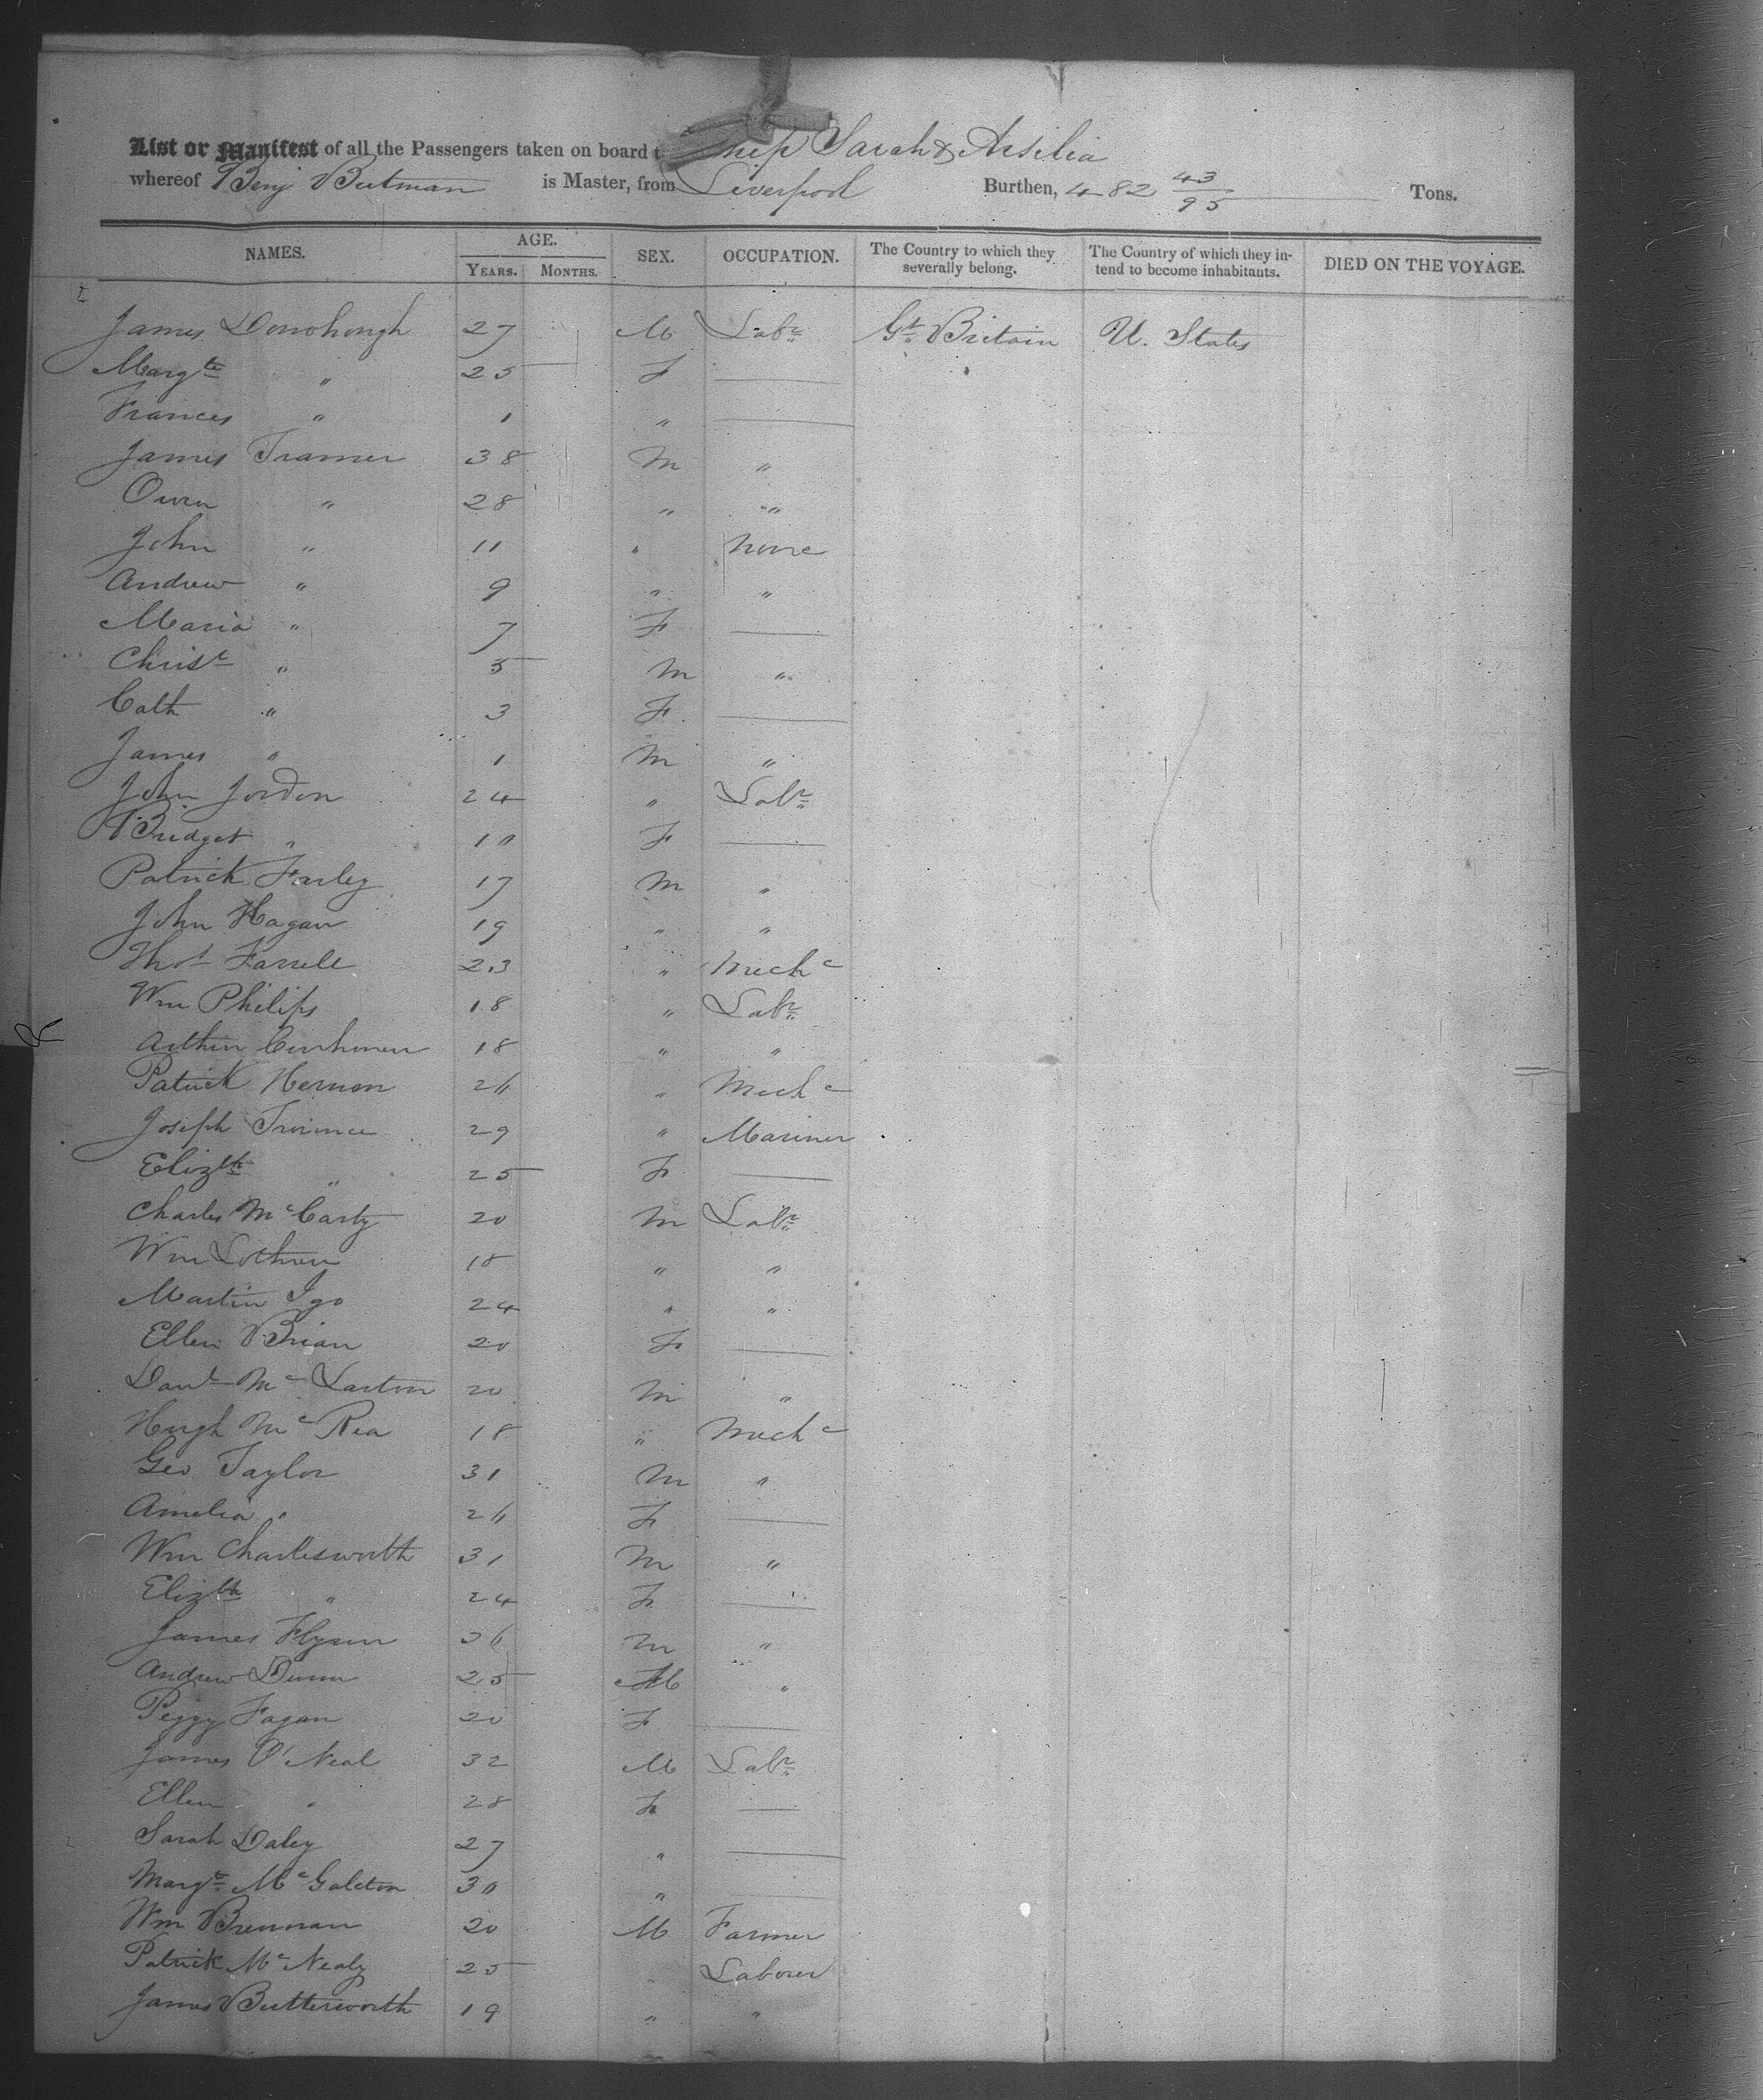 List or Manifest of all the Passengers taken on board t Ship Sarah & Arsilia
whereof Benj Butman is Master, from Liverpool Burthen, 482 43/95 Tons.
NAMES. AGE. YEARS. MONTHS. SEX. OCCUPATION. The Country to which they severally belong. The Country of which they intend to become inhabitants. DIED ON THE VOYAGE.
James Donohough 27 M Labr Gt Britain U. States
Margte " 25 F
Frances " 1 "
James Tramer 38 M "
Owen " 28 " "
John " 11 " None
Andrew " 9 " "
Maria " 7 F
Christ " 5 M "
Cath " 3 F
James " 1 M "
John Jordon 24 " Labr
Bridget " 10 F
Patrick Farley 17 M "
John Hagan 19 " "
Thos Farrell 23 " Mechc
Wm Philips 18 " Labr
Arthur 18 " "
Patrick Hernon 26 " Mechc
Joseph 29 " Mariner
Elizth " 25 F
Charles McCarty 20 M Labr
Wm Lothrou 18 " "
Martin Igo 24 " "
Ellen Brian 20 F
Danl Mc Laston 20 M "
Hugh Mc Rea 18 " Mechc
Geo Taylor 31 M "
Amelia " 26 F
Wm Charlesworth 31 M "
Elizth " 24 F
James Flynn 36 M "
Andrew Dunn 25 M "
Peggy Fagan 20 F
James O'Neal 32 M Labr
Ellen " 28 F
Sarah Daley 27 "
Margt McGolcton 30 "
Wm Brennan 20 M Farmer
Patrick McNealy 25 " Laborer
James Butterworth 19 " "